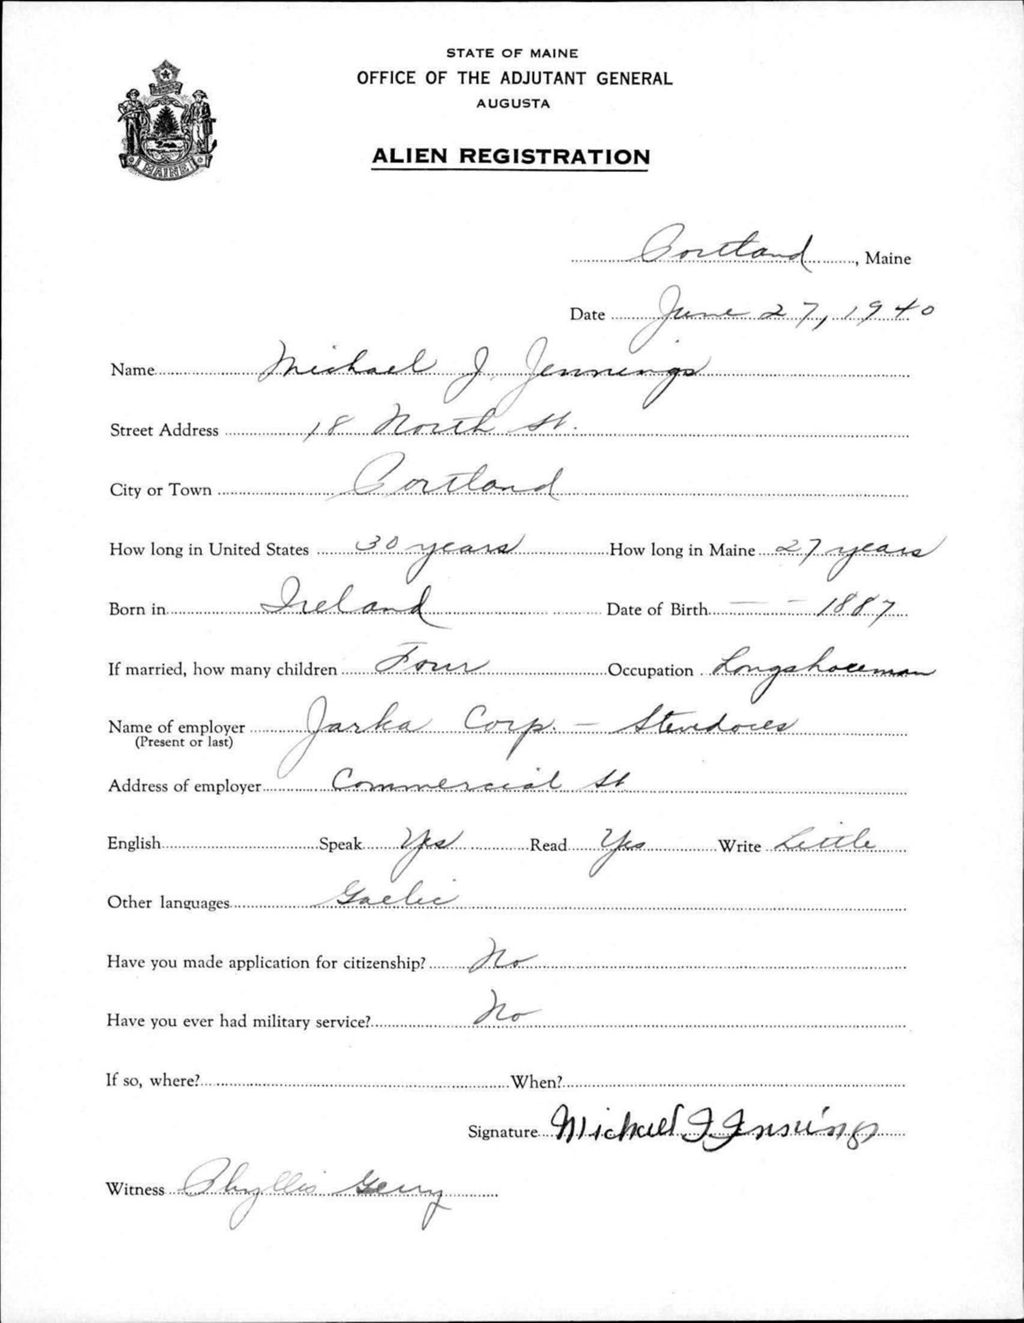 STATE OF MAINE
OFFICE OF THE ADJUTANT GENERAL
AUGUSTA
ALIEN REGISTRATION
MAINE
Portland, Maine
Date June 27, 1940
Name Michael J. Jennings
Street Address 18 North St.
City or Town Portland
How long in United States 30 years How long in Maine 27 years
Born in Ireland Date of Birth — — 1887
If married, how many children Four Occupation Longshoreman
Name of employer Jarka Corp. — Stevedores
(Present or last)
Address of employer Commercial St
English Speak Yes Read Yes Write Little
Other languages Gaelic
Have you made application for citizenship? No
Have you ever had military service? No
If so, where? When?
Signature Michael J. Jennings
Witness Phyllis Gerry